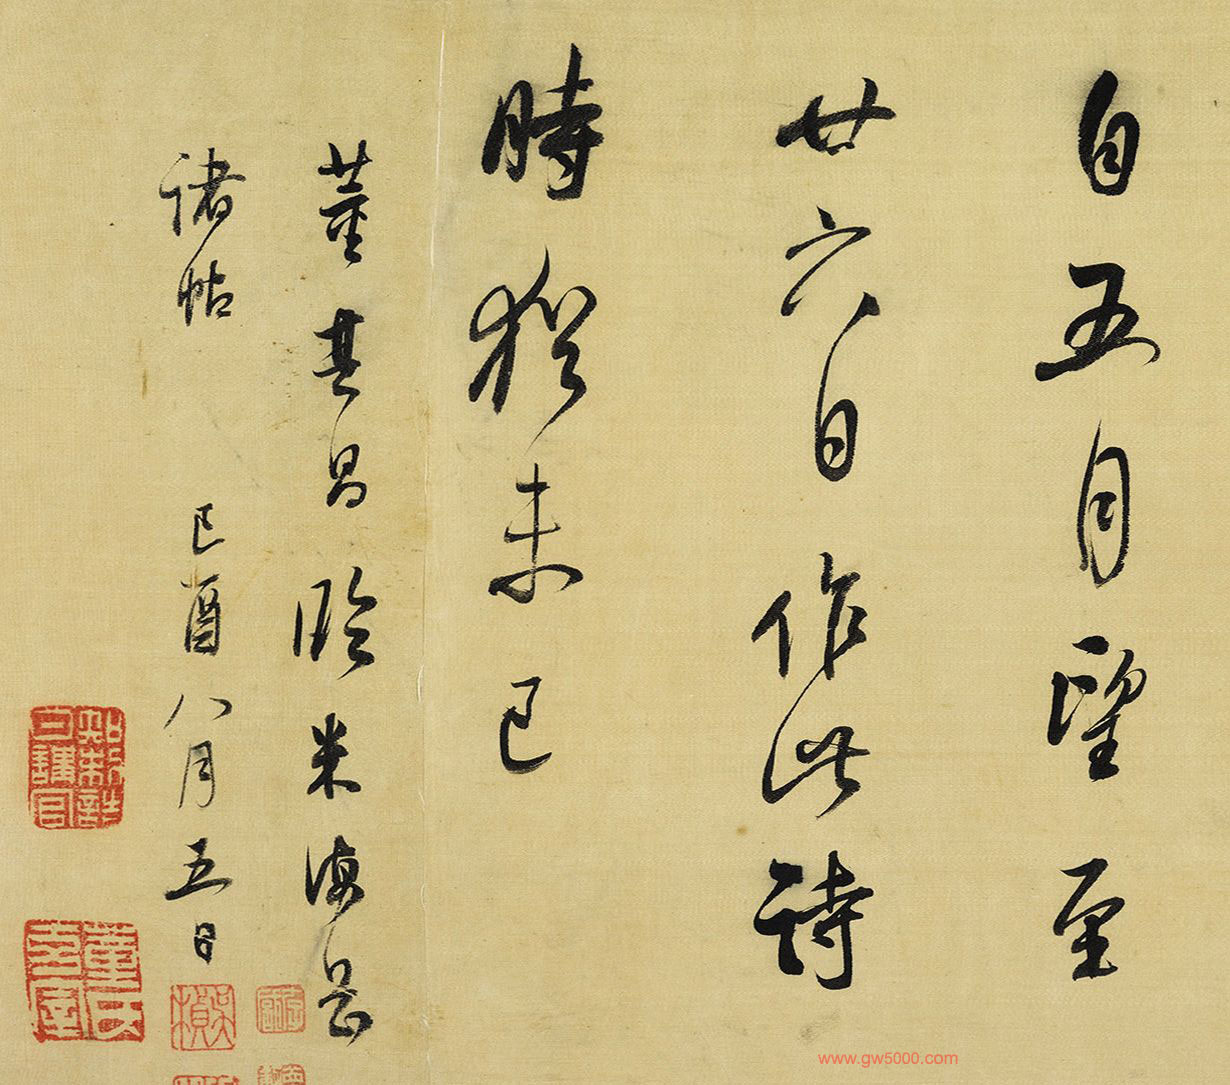 自五月望至
廿六日作此詩
時猶未已
董其昌臨米海岳
諸帖 己酉八月五日
董氏
www.gw5000.com